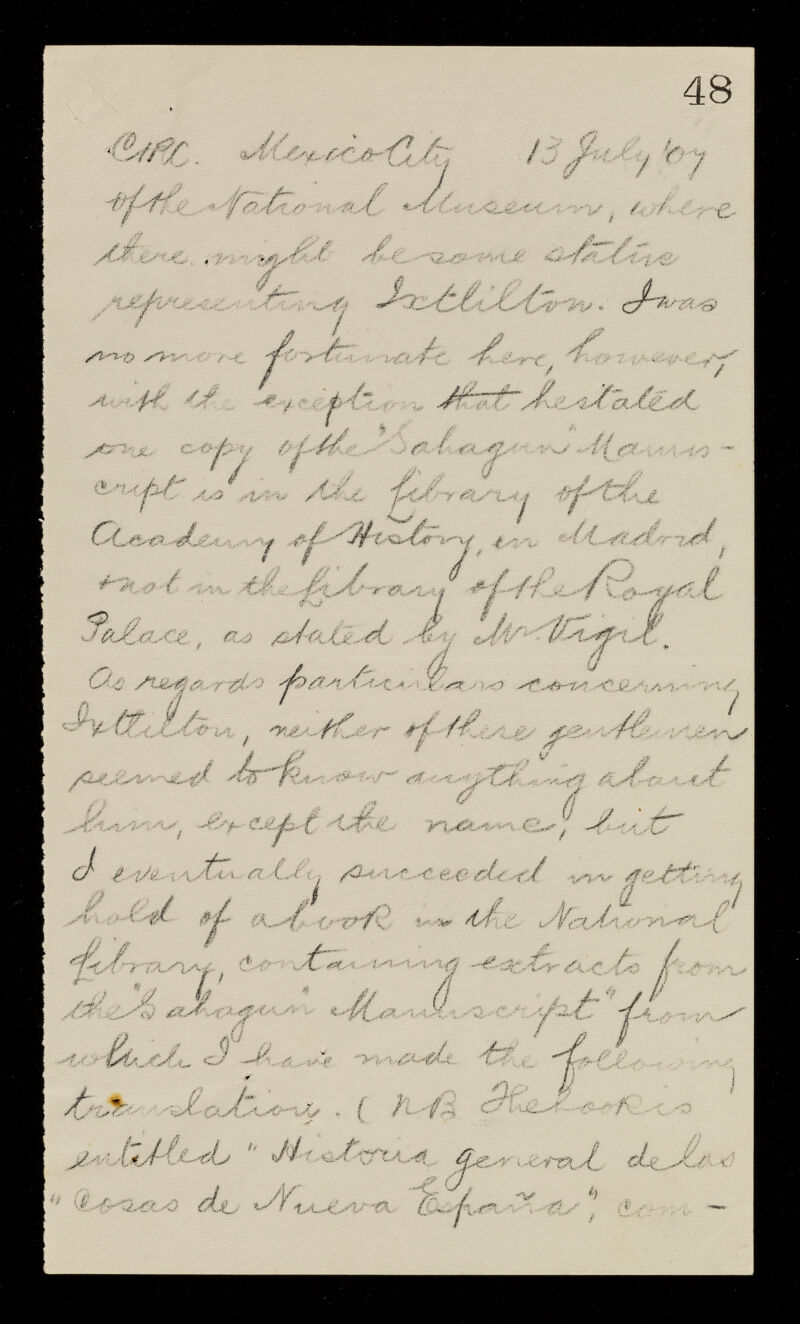 48
CIRC. Mexico City 13 July '07
of the National Museum, where
there might be some statue
representing Ixtlilton. I was
no more fortunate here, however,
with the exception that he stated
one copy of the "Sahagun" Manus-
cript is in the Library of the
Academy of History, in Madrid,
+ not in the Library of the Royal
Palace, as stated by Mr. Vigil.
As regards particulars concerning
Ixtlilton, neither of these gentlemen
seemed to know anything about
him, except the name, but
I eventually succeeded in getting
hold of a book in the National
Library, containing extracts from
the "Sahagun" Manuscript" from
which I have made the following
translation. ( NB The book is
entitled "Historia general de las
"Cosas de Nueva España", com-